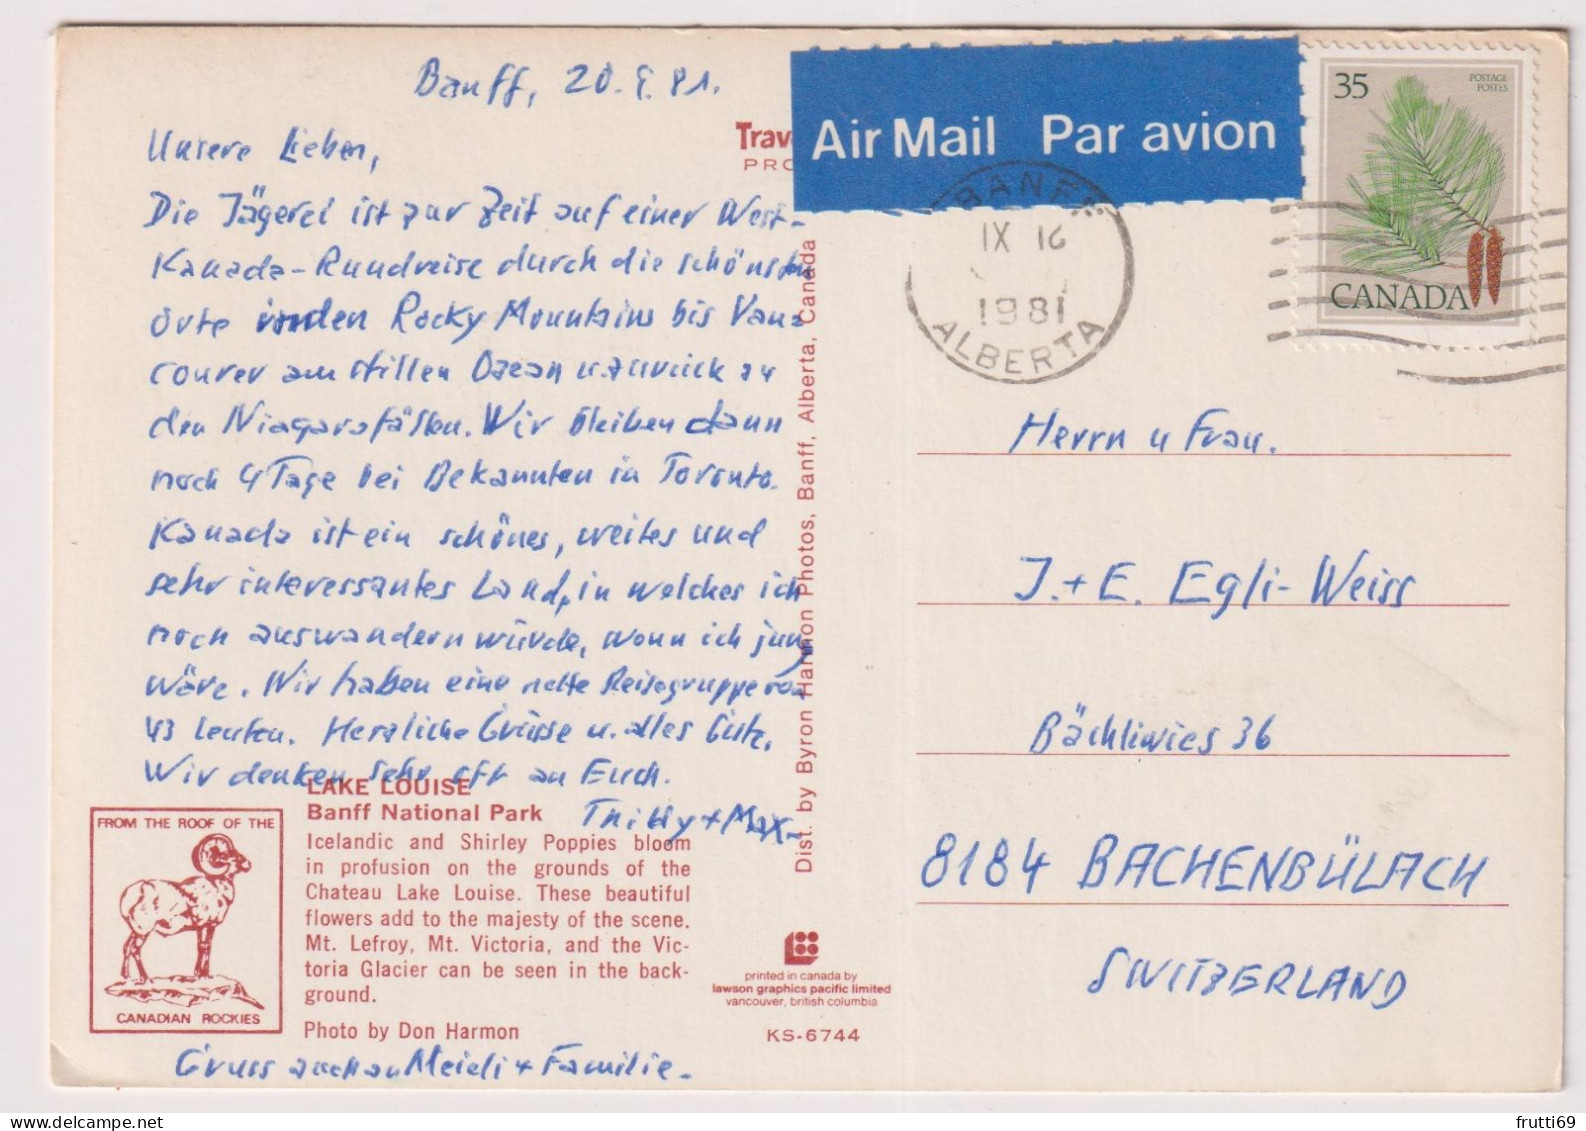 Banff, 20.9.81.
Unsere Lieben,
Die Jägerei ist zur Zeit auf einer West-
Kanada-Rundreise durch die schönsten
Orte in den Rocky Mountains bis Van-
couver am stillen Ozean u. zurück zu
den Niagarafällen. Wir bleiben dann
noch 4 Tage bei Bekannten in Toronto.
Kanada ist ein schönes, weites und
sehr interessantes Land, in welches ich
noch auswandern würde, wenn ich jung
wäre. Wir haben eine nette Reisegruppe von
43 Leuten. Herzliche Grüsse u. alles Gute.
Wir denken sehr oft an Euch.
+ Max
LAKE LOUISE
Banff National Park
Icelandic and Shirley Poppies bloom
in profusion on the grounds of the
Chateau Lake Louise. These beautiful
flowers add to the majesty of the scene.
Mt. Lefroy, Mt. Victoria, and the Vic-
toria Glacier can be seen in the back-
ground.
Photo by Don Harmon
FROM THE ROOF OF THE
CANADIAN ROCKIES
Gruss auch an Meieli + Familie.
Trav
PRO
Dist. by Byron Harmon Photos, Banff, Alberta, Canada
printed in canada by
lawson graphics pacific limited
vancouver, british columbia
KS-6744
Air Mail Par avion
BANFF
IX 16
1981
ALBERTA
35
POSTAGE
POSTES
CANADA
Herrn u Frau.
J.+E. Egli-Weiss
Bächliwies 36
8184 BACHENBÜLACH
SWITZERLAND
frutti69